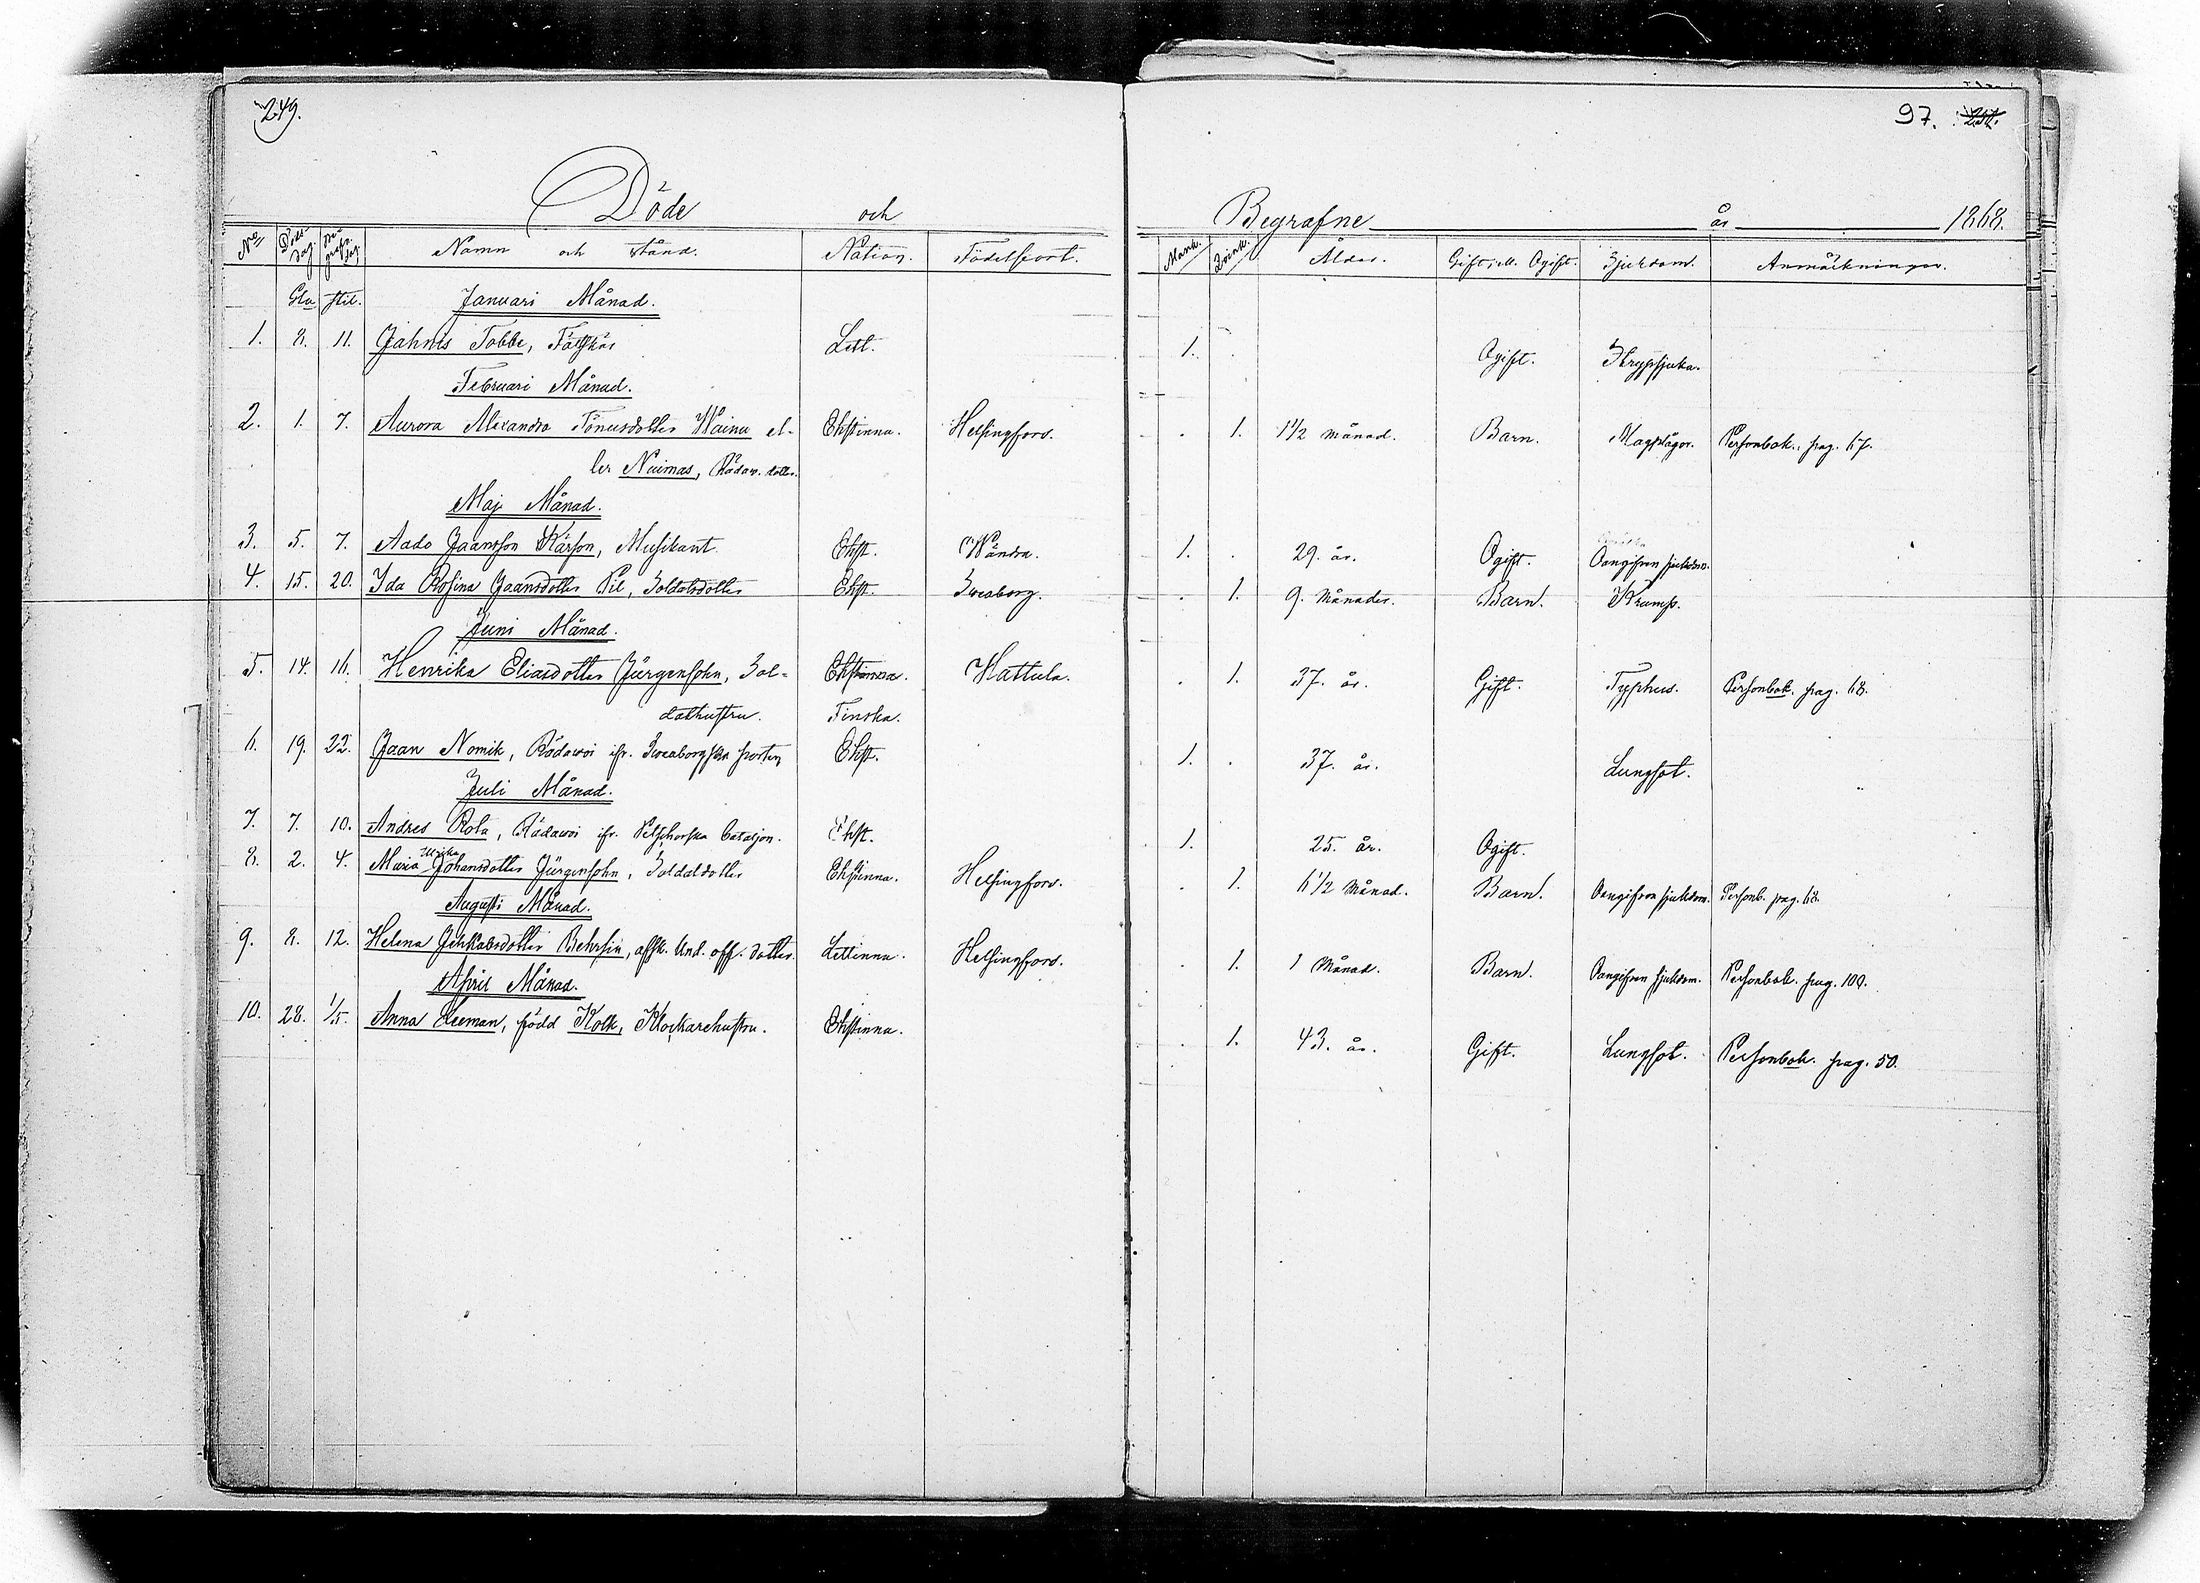 249.
97. 251.
Döde och Begrafne år 1868.
No Döds dag. Be grafn. dag. Namn och stånd. Nation. Födelseort. Mank. Qvink. Ålder. Gift; ell. Ogift. Sjukdom. Anmärkningar.
Gla stil. Januari Månad.
1. 8. 11. Jahnis Tobbe, Fältskär Lett. 1. Ogift.
Februari Månad.
2. 1. 7. Aurora Alexandra Tönusdotter Waina el- Ehstinna. Helsingfors. 1. 1 1/2 månad. Barn. Magplågor. Personbok. pag. 67.
ler Naimas, Rådaw. dotter.
Maj Månad.
3. 5. 7. Aado Jaansson Kärson, Musikant. Ehst. Wändra. 1. 29. år. Ogift. Oangifven sjukdom.
4. 15. 20. Ida Rosina Jaansdotter Pil, Soldatsdotter Ehst. Sveaborg. 1. 9. Månader. Barn. Kramp.
Juni Månad.
5. 14. 16. Henrika Eliasdotter Jürgensohn, Sol- Ehstinna. Hattula. 1. 37. år. Gift. Typhus. Personbok. pag. 68.
dathustru. Finska.
6. 19. 22. Jaan Nomik, Rådawoi ifr. Sveaborgska porten Ehst. 1. 37. år. Lungsot.
Juli Månad.
7. 7. 10. Andres Rota, Rådawoi ifr. bataljon. Ehst. 1. 25. år. Ogift.
8. 2. 4. Maria Ulrika Johansdotter Jürgensohn, Soldatdotter Ehstinna. Helsingfors. 1. 6 1/2 Månad. Barn. Oangifven sjukdom. Personb. pag. 68.
Augusti Månad.
9. 8. 12. Helena Jehkabsdotter Behrsin, afsk. Und. off. dotter. Lettinna. Helsingfors. 1. 1 Månad. Barn. Oangifven sjukdom. Personbok. pag. 100.
April Månad.
10. 28. 1/5. Anna Leeman, född Kolk, Klockarehustru. Ehstinna. 1. 43. år. Gift. Lungsot. Personbok. pag. 50.